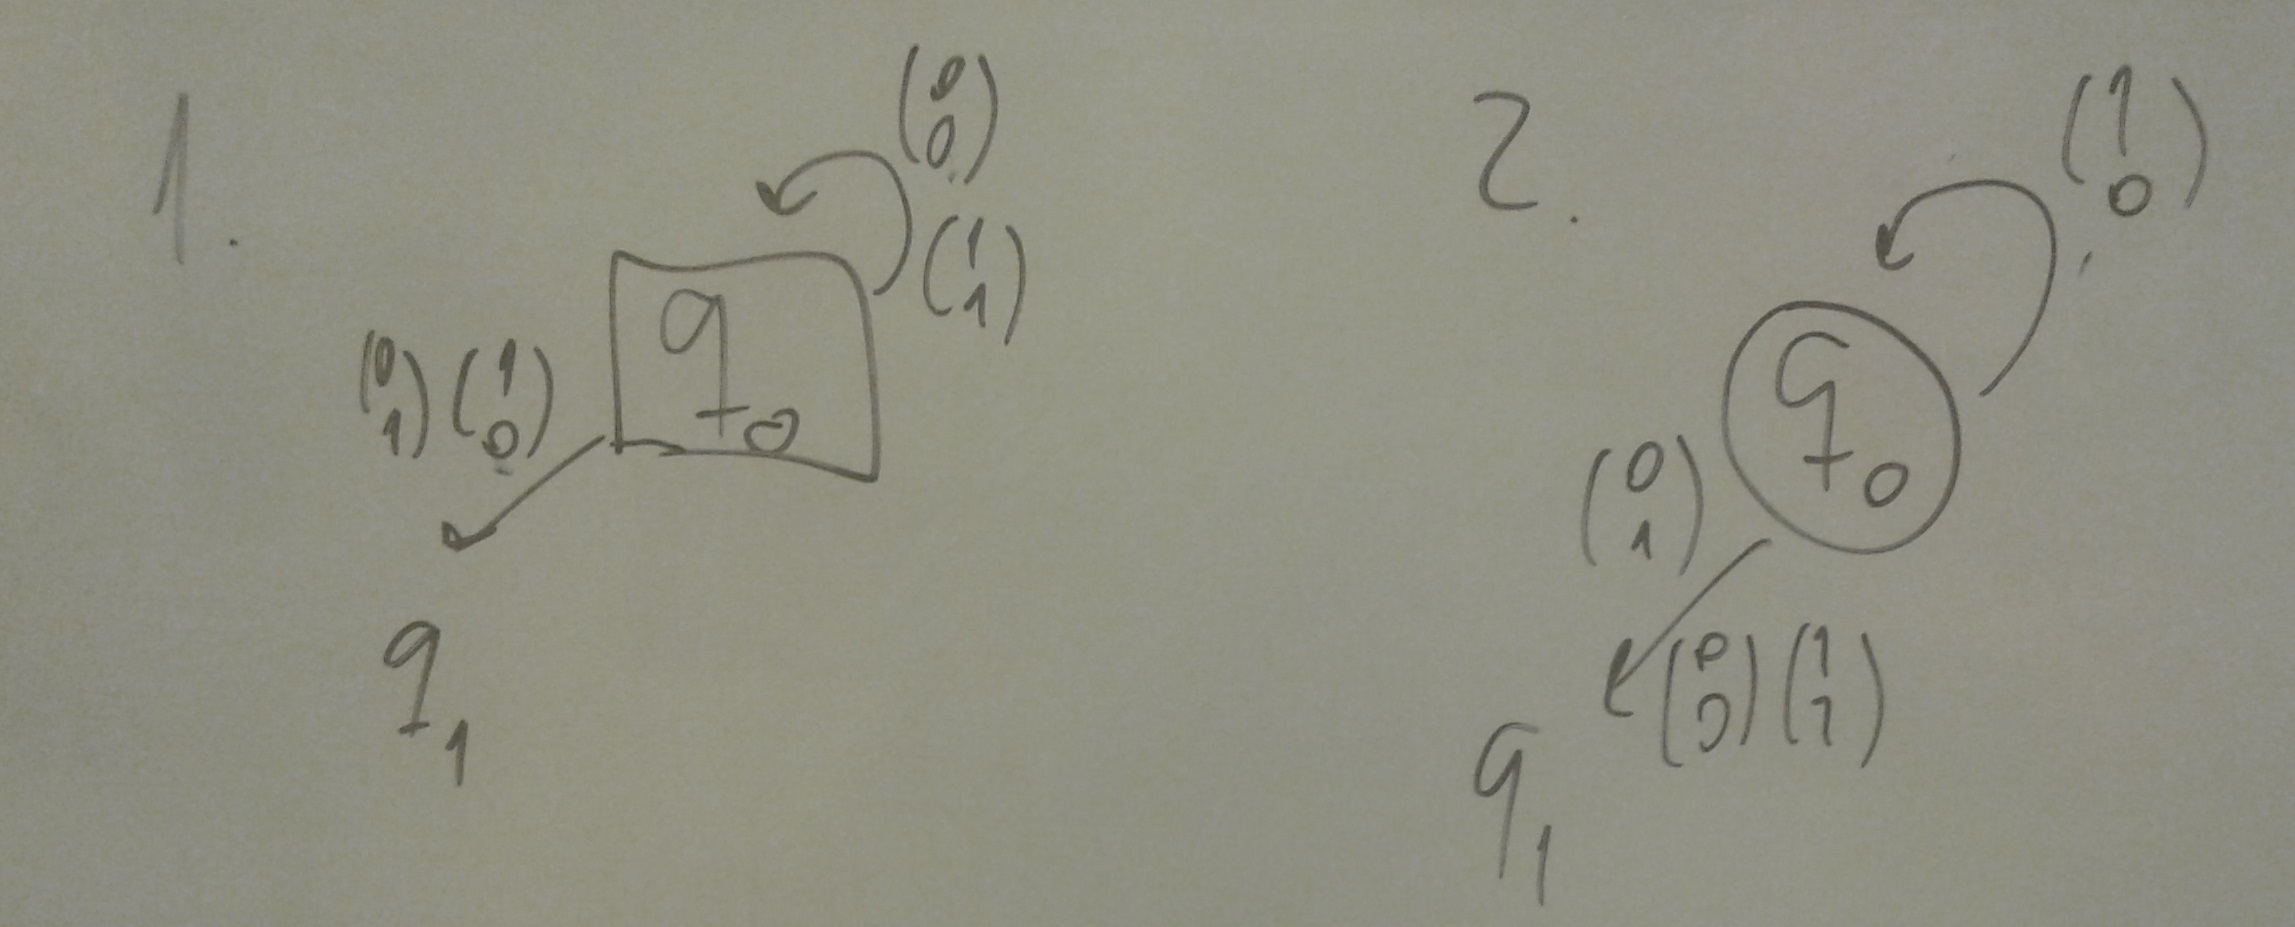 1.
(0
0)
(1
1)
q0
(0
1) (1
0)
q1
2.
(1
0)
q0
(0
1)
(0
0) (1
1)
q1